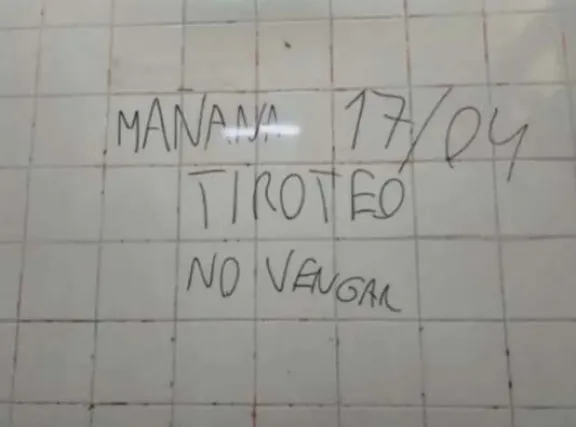 MANANA 17/04
TIROTEO
NO VENGAN